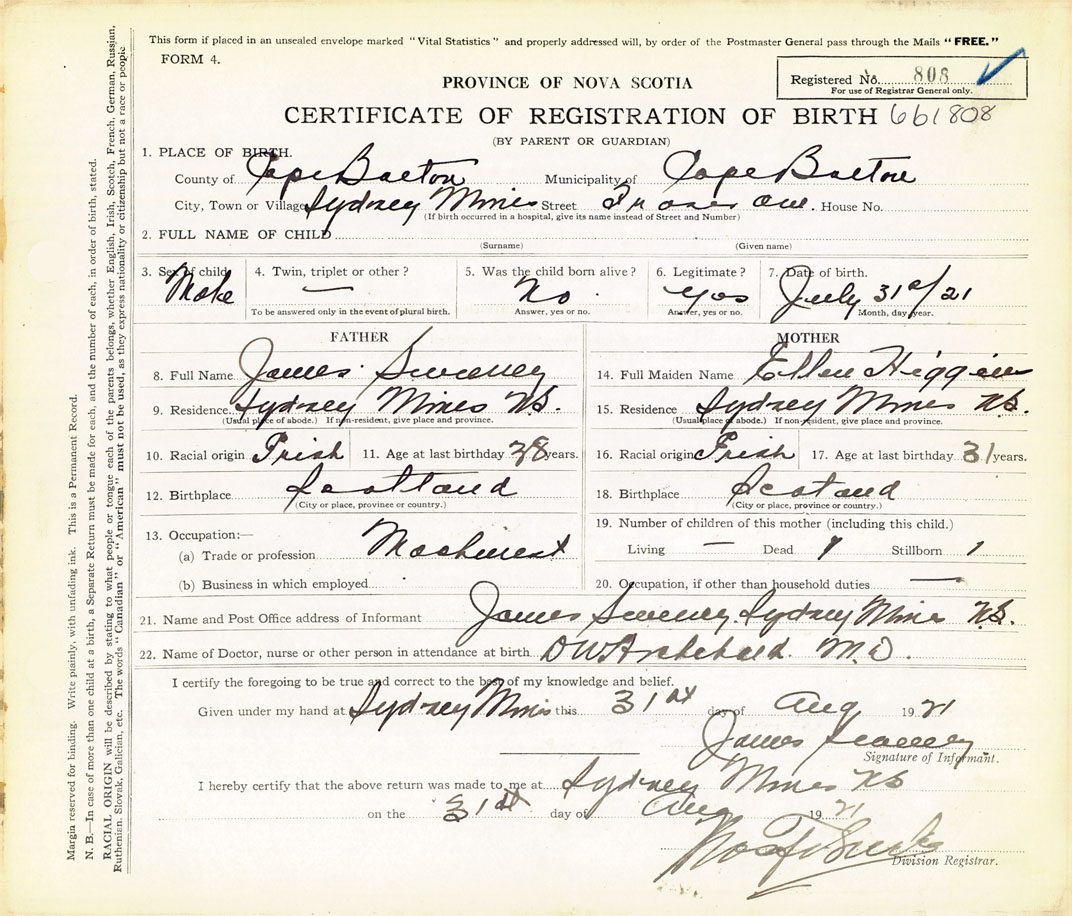 This form if placed in an unsealed envelope marked "Vital Statistics" and properly addressed will, by order of the Postmaster General pass through the Mails "FREE."
FORM 4.
Registered No. 808
For use of Registrar General only.
PROVINCE OF NOVA SCOTIA
CERTIFICATE OF REGISTRATION OF BIRTH 661808
(BY PARENT OR GUARDIAN)
1. PLACE OF BIRTH.
County of Cape Breton Municipality of Cape Breton
City, Town or Village Sydney Mines Street Fraser Ave. House No.
(If birth occurred in a hospital, give its name instead of Street and Number)
2. FULL NAME OF CHILD
(Surname) (Given name)
3. Sex of child Male
4. Twin, triplet or other? —
To be answered only in the event of plural birth.
5. Was the child born alive? No.
Answer, yes or no.
6. Legitimate? Yes
Answer, yes or no.
7. Date of birth. July 31st/21
Month, day, year.
FATHER
8. Full Name James Sweeney
9. Residence Sydney Mines N.S.
(Usual place of abode.) If non-resident, give place and province.
10. Racial origin Irish 11. Age at last birthday 38 years.
12. Birthplace Scotland
(City or place, province or country.)
13. Occupation:—
(a) Trade or profession Machinest
(b) Business in which employed
MOTHER
14. Full Maiden Name Ellen Higgins
15. Residence Sydney Mines N.S.
(Usual place of abode.) If non-resident, give place and province.
16. Racial origin Irish 17. Age at last birthday 31 years.
18. Birthplace Scotand
(City or place, province or country.)
19. Number of children of this mother (including this child.)
Living — Dead Stillborn 1
20. Occupation, if other than household duties —
21. Name and Post Office address of Informant James Sweeney. Sydney Mines N.S.
22. Name of Doctor, nurse or other person in attendance at birth DW Archibald. M.D.
I certify the foregoing to be true and correct to the best of my knowledge and belief.
Given under my hand at Sydney Mines this 31st day of Aug 1921
James Sweeney
Signature of Informant.
I hereby certify that the above return was made to me at Sydney Mines NS
on the 31st day of Aug 1921
Division Registrar.
Margin reserved for binding. Write plainly, with unfading ink. This is a Permanent Record.
N. B.—In case of more than one child at a birth, a Separate Return must be made for each, and the number of each, in order of birth, stated.
RACIAL ORIGIN will be described by stating to what people or tongue each of the parents belongs, whether English, Irish, Scotch, French, German, Russian,
Ruthenian, Slovak, Galician, etc. The words "Canadian" or "American" must not be used, as they express nationality or citizenship but not a race or people